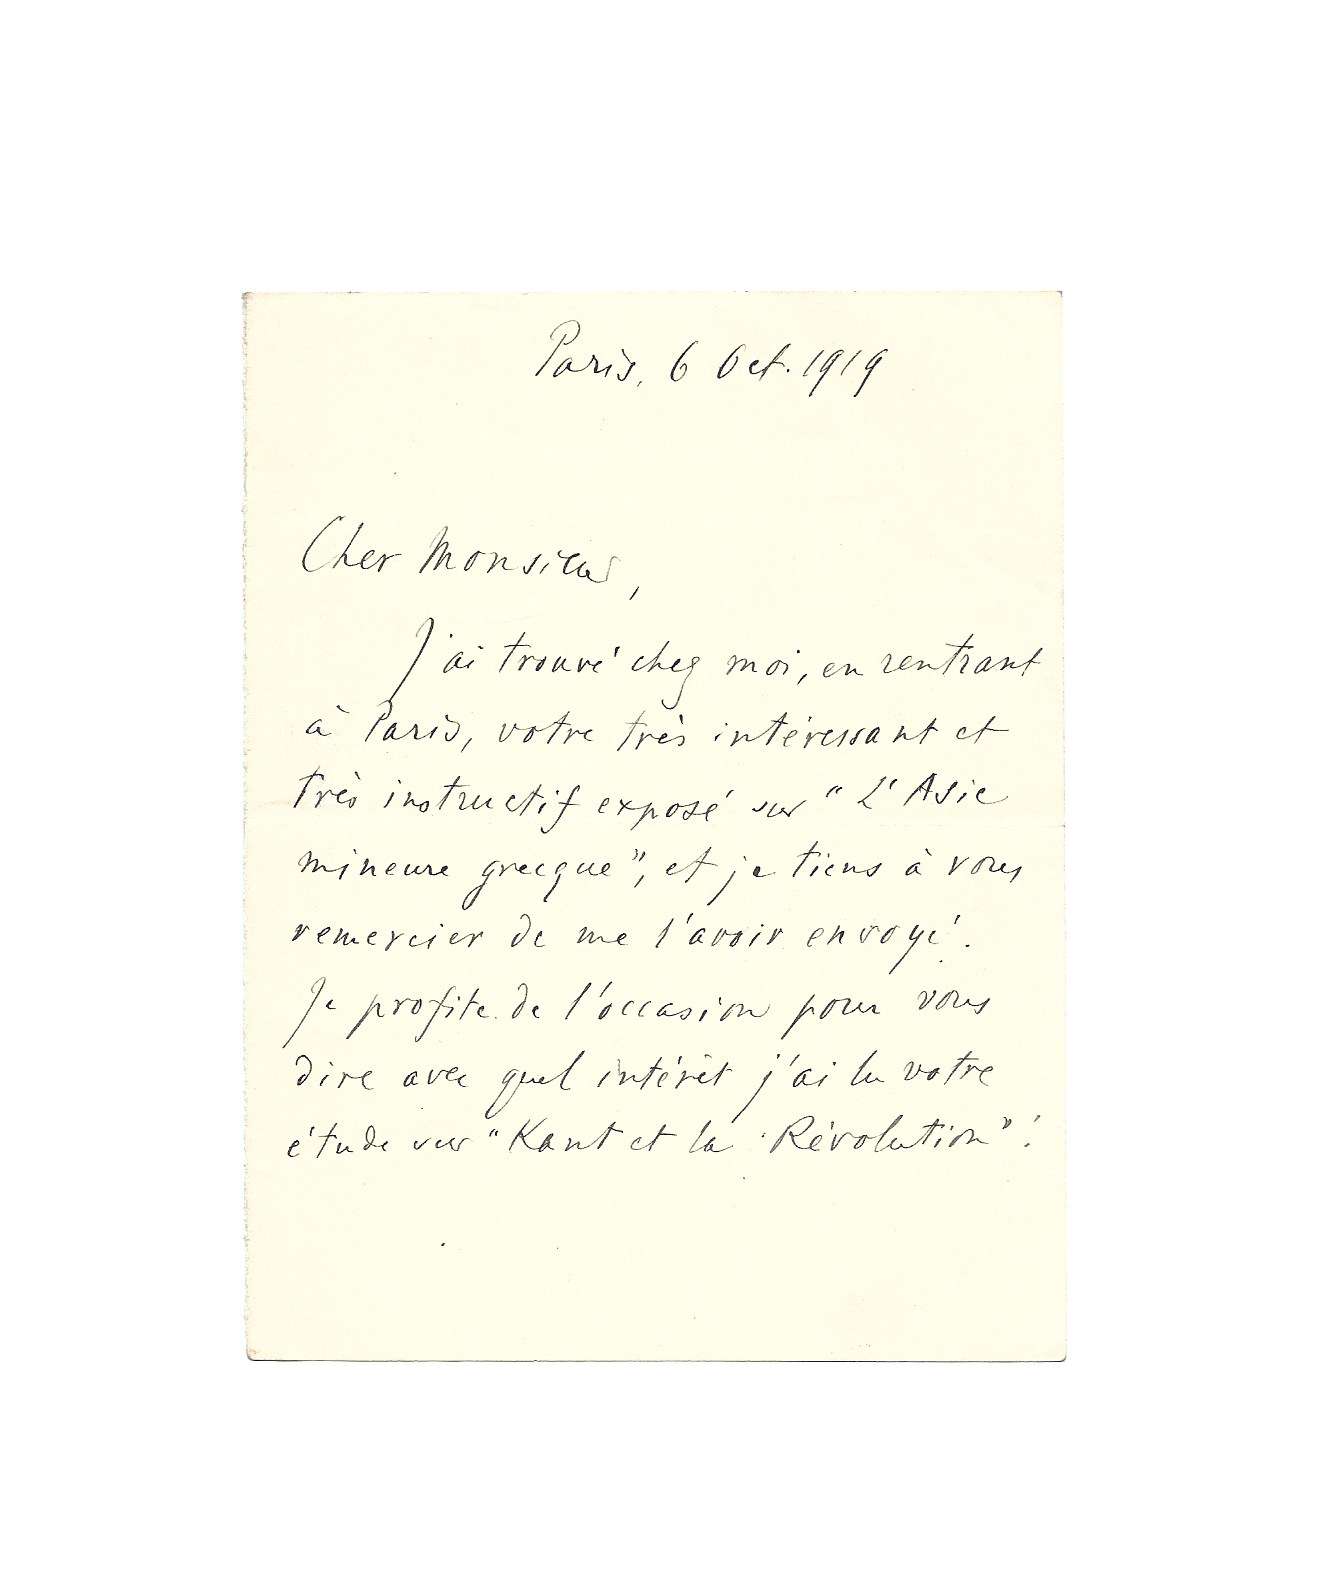 Paris, 6 Oct. 1919
Cher Monsieur,
J'ai trouvé chez moi, en rentrant
à Paris, votre très intéressant et
très instructif exposé sur "L'Asie
mineure grecque", et je tiens à vous
remercier de me l'avoir envoyé.
Je profite de l'occasion pour vous
dire avec quel intérêt j'ai lu votre
étude sur "Kant et la Révolution" :